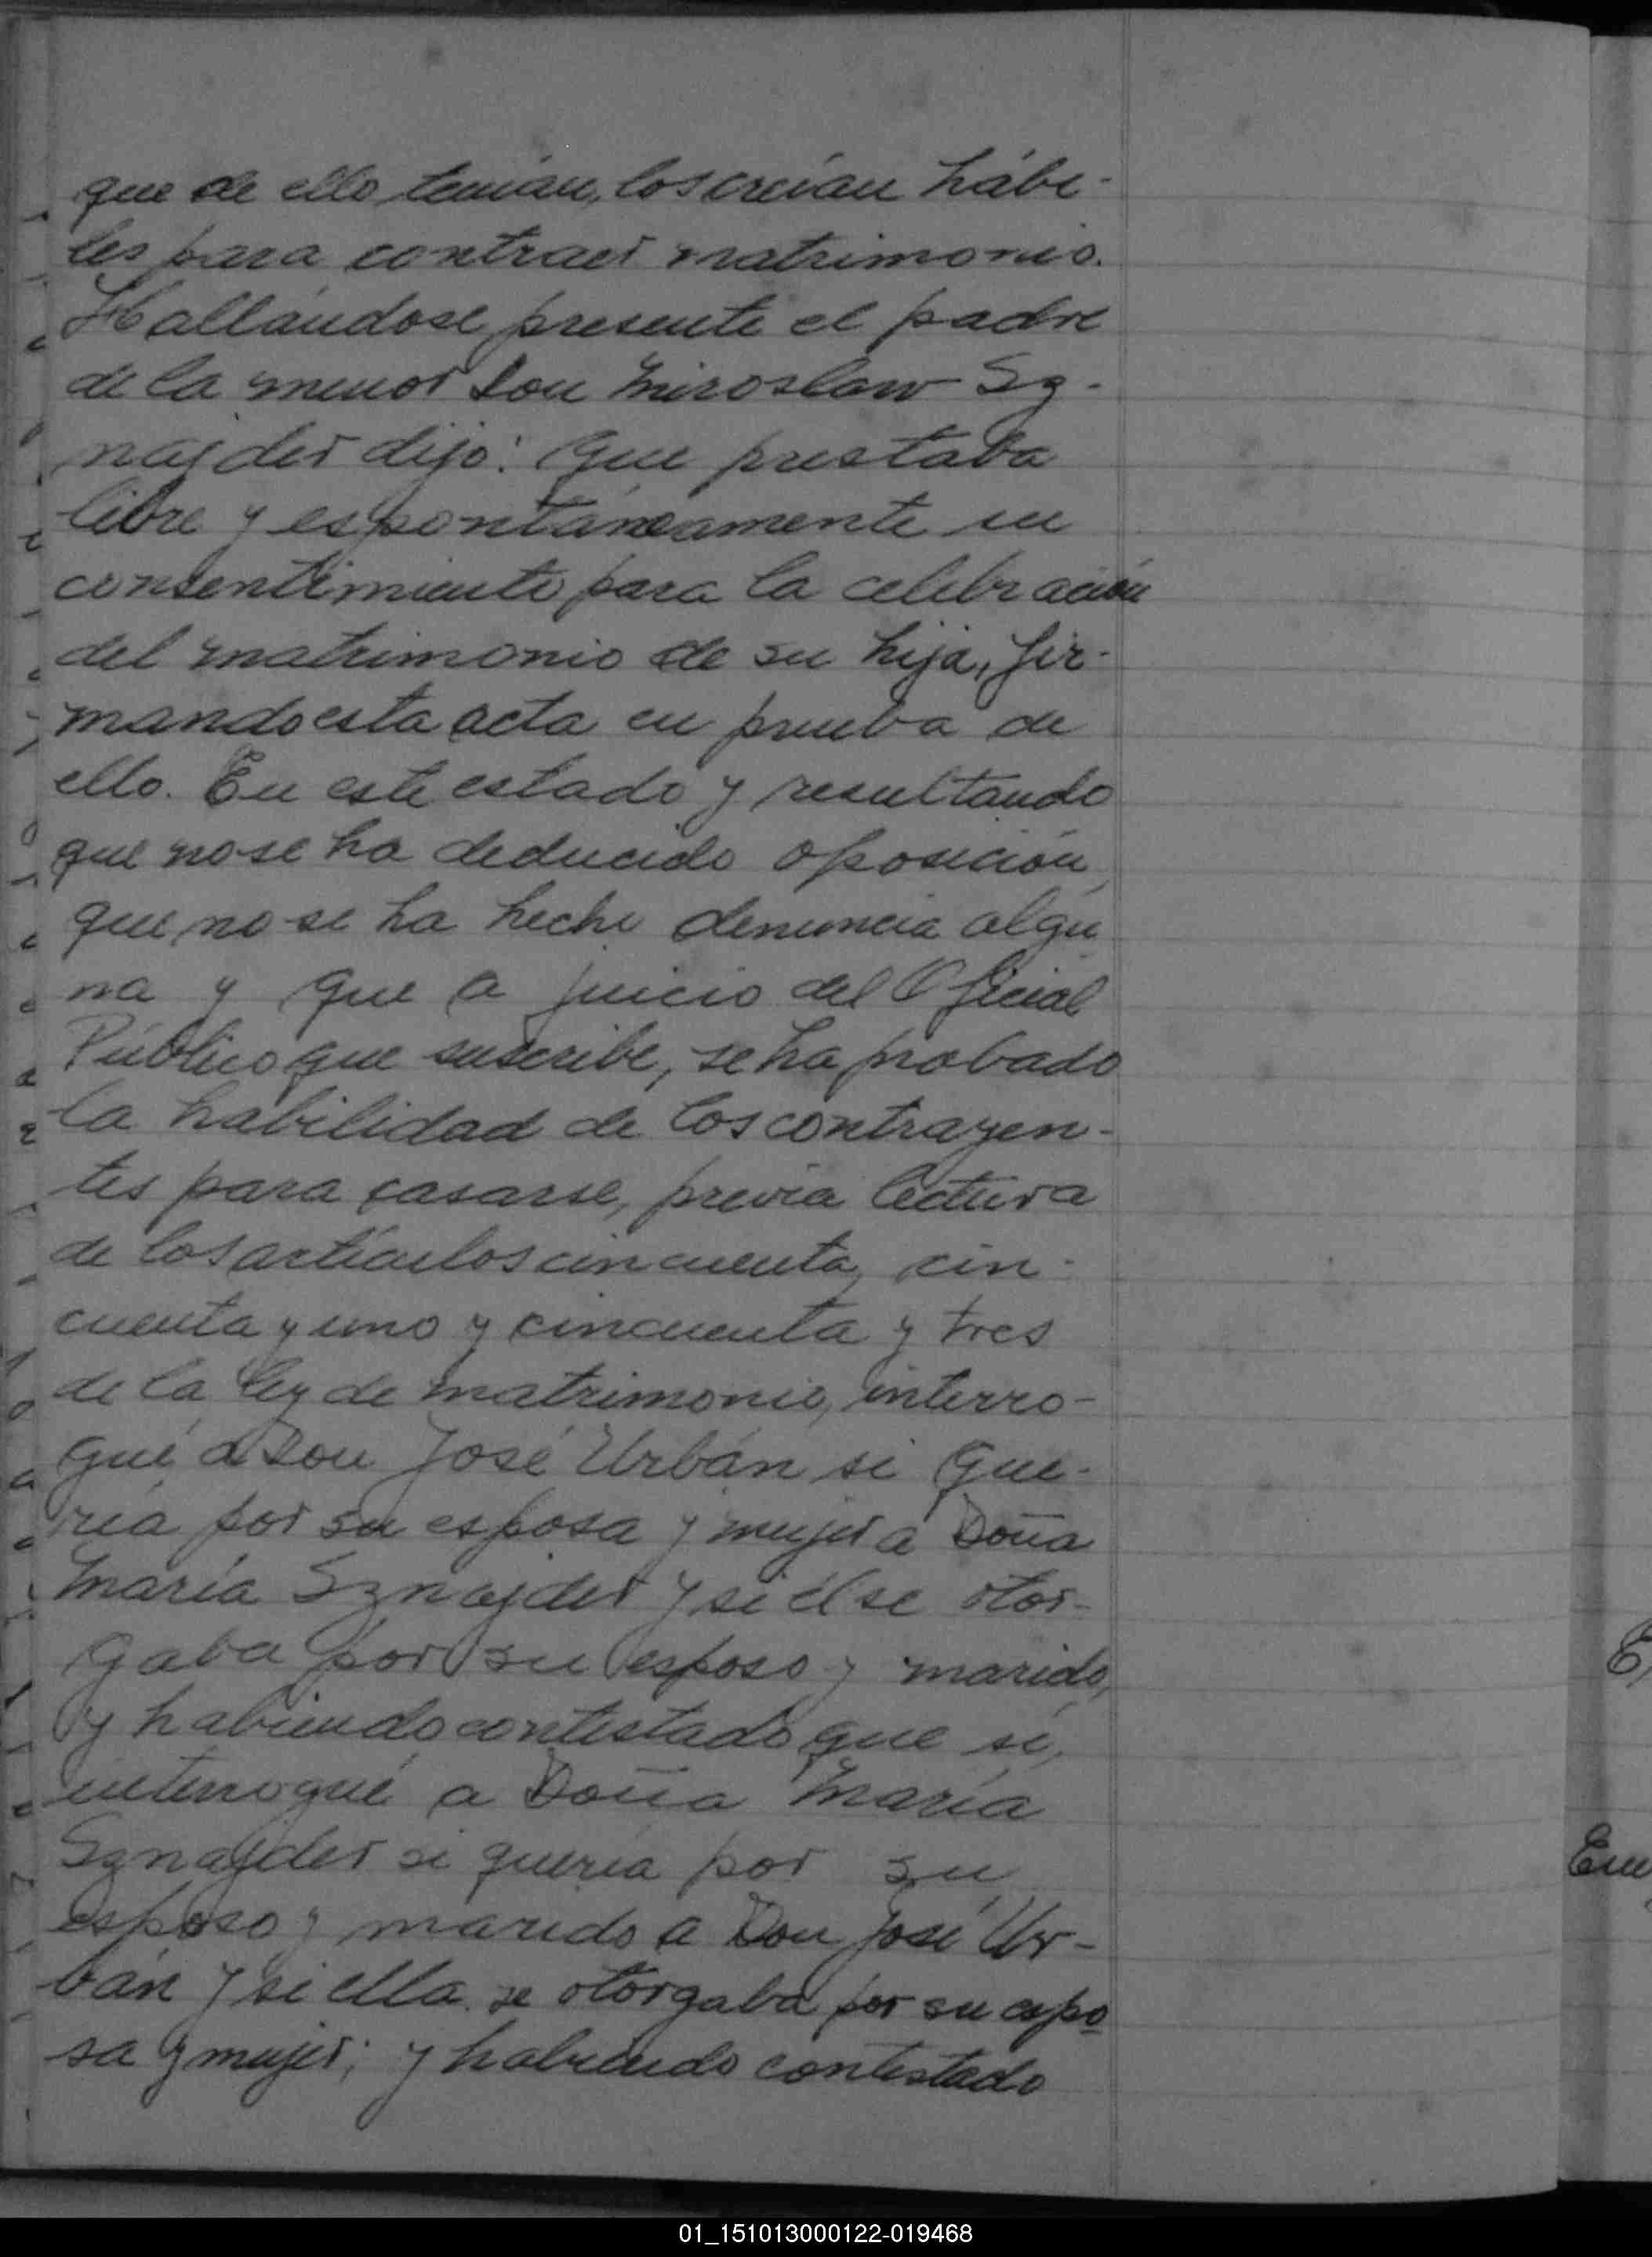 que de ello tenían, los creían hábi-
les para contraer matrimonio.
Hallándose presente el padre
de la menor Don Miroslaw Sz-
najder dijo: Que prestaba
libre y espontáneamente su
consentimiento para la celebración
del matrimonio de su hija, fir-
mando esta acta en prueba de
ello. En este estado y resultando
que no se ha deducido oposición,
que no se ha hecho denuncia algu
na y que a juicio del Oficial
Público que suscribe, se ha probado
la habilidad de los contrayen-
tes para casarse, previa lectura
de los artículos cincuenta, cin-
cuenta y uno y cincuenta y tres
de la ley de matrimonio, interro-
gué a Don José Urbán si que-
ría por su esposa y mujer a Doña
María Sznajder y si él se otor-
gaba por su esposo y marido,
y habiendo contestado que sí,
interrogué a Doña María
Sznajder si quería por su
esposo y marido a Don José Ur-
bán y si ella se otorgaba por su espo
sa y mujer; y habiendo contestado
01_151013000122-019468